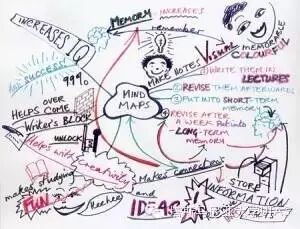 INCREASES IQ
MEMORY INCREASES
remember
VISUAL
MEMORABLE
COLOURFUL
SUCCESS
999%
MAKE NOTES
① WRITE THEM IN
LECTURES
② REVISE THEM AFTERWARDS
③ PUT INTO SHORT-TERM
MEMORY
④ REVISE AFTER
A WEEK PUT INTO
LONG-TERM
MEMORY
MIND
MAPS
OVER
HELPS COME
WRITER'S BLOCK
UNLOCK
Helps with creativity
Makes connections
makes studying
FUN
Heehee
and
IDEAS
STORE
INFORMATION